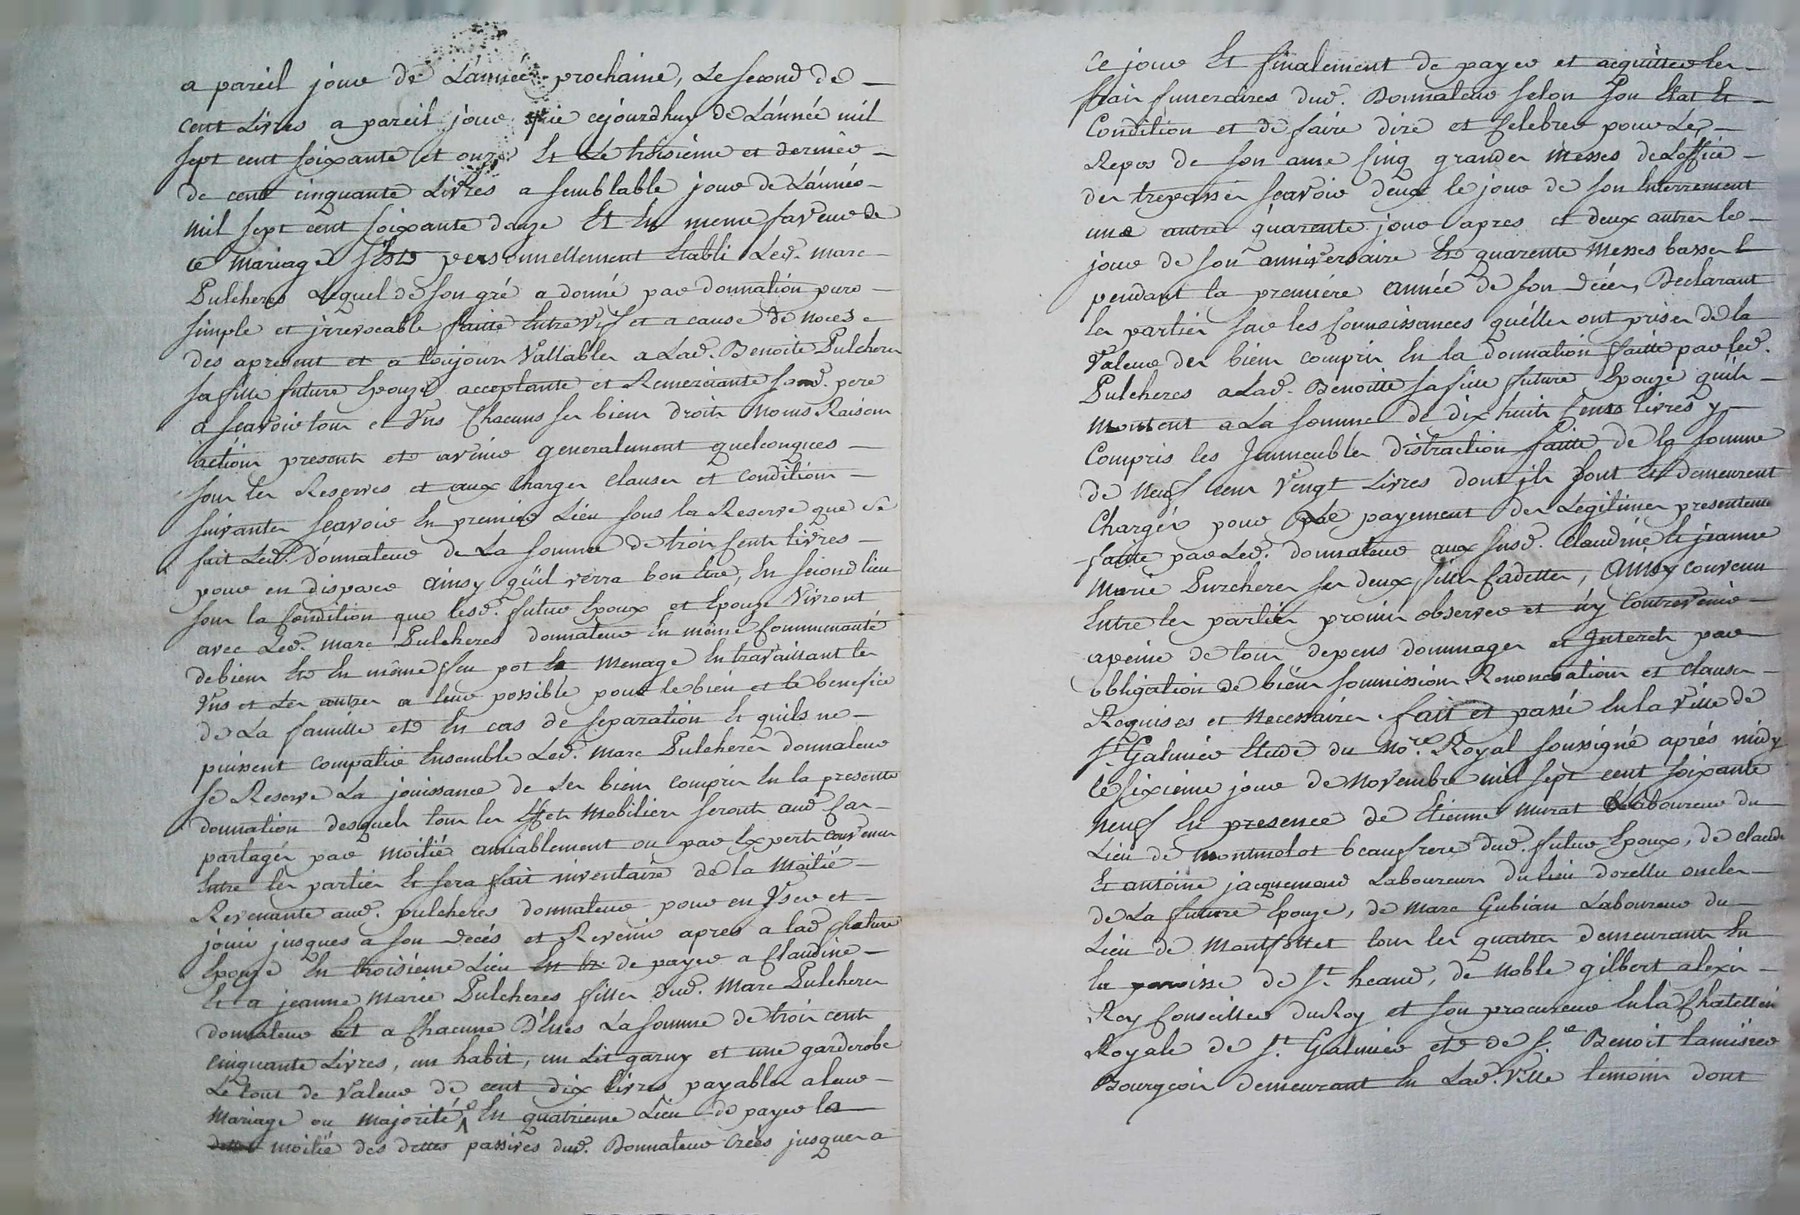 a pareil jour de L'année prochaine, Le second de
Cent Livres a pareil jour que cejourdhuy de L'année mil
sept cent soixante et onze Et Le troisieme et dernier
de cent cinquante Livres a semblable jour de L'année
mil sept cent soixante douze Et En meme faveur de
ce mariage s'est personnellement Etabli Led. marc
Pulcheres Lequel de son gré a donné par donnation pure
simple et irrevocable faitte Entre vifs et a cause de noces
des apresent et a toujours Vallables a Lad. Benoite Pulcheres
sa fille future Epouze acceptante et Remerciante sond. pere
a scavoir tous et Uns Chacuns ses biens droits Noms Raisons
actions presents et avenir generalement quelconques
sous les Reserves et aux charges clauses et conditions
suivantes scavoir En premier Lieu sous la Reserve que se
fait Led. Donnateur de La somme de trois cents livres
pour en disposer ainsy quil verra bon Etre, En second lieu
sous la condition que lesd. futurs Epoux et Epouze Vivront
avec Led. marc Pulcheres donnateur En même Communauté
de biens Et En même feu pot et menage En travaillant les
Uns et Les autres a leur possible pour le bien et le benefice
de La famille et En cas de separation Et quils ne
puissent compatir Ensemble Led. Marc Pulcheres donnateur
se Reserve La jouissance de ses biens compris En la presente
donnation desquels tous les Effets Mobiliers seront aud. cas
partagés par moitié amiablement ou par Experts convenus
Entre les parties Et sera fait inventaire de la Moitié
Revenante aud. pulcheres donnateur pour en User et
jouir jusques a son decés et Revenir apres a lad. future
Epouze En troisieme Lieu de payer a Claudine
Et a jeanne Marie Pulcheres filles dud. Marc Pulcheres
donnateur Et a Chacune D'Elles La somme de trois cent
cinquante Livres, un habit, un Lit garny et une garderobe
Le tout de valeur de cent dix livres payables a leur
Mariage ou majorité En quatrieme Lieu de payer la
moitié des dettes passives dud. Donnateur crées jusques a
Ce jour Et finalement de payer et acquitter les
frais funeraires dud. Donnateur selon son Etat Et
Condition et de faire dire et Celebrer pour Le
Repos de son ame Cinq grandes Messes de L'office
des trepassés scavoir deux le jour de son Enterrement
une autre quarente jour apres et deux autres le
jour de son anniversaire Et quarente Messes basses
pendant la premiere année de son decés, Declarant
les parties sur les Connoissances qu'elles ont prises de la
Valeur des biens compris En la donnation faitte par led.
Pulcheres a Lad. Benoitte sa fille future Epouze quils
montent a La somme de dix huit Cents livres y
Compris les Immeubles distraction faitte de la somme
de Neuf cent Vingt Livres dont ils sont Et demeurent
Chargés pour Le payement des Legitimes presentement
faitte par Led. donnateur aux susd. Claudine Et jeanne
Marie Purcheres ses deux filles Cadettes, Ainsy convenu
Entre les parties promis observer et n'y contrevenir
apeine de tous depens dommages et Interets par
obbligation de biens soumissions Renonciations et clauses
Requises et Necessaires. fait et passé En la Ville de
St. Galmier Etude du Nore. Royal soussigné aprés midy
le sixieme jour de Novembre mil sept cent soixante
Neuf En presence de Etienne Murat Laboureur du
Lieu de Montmolot beaufrere dud. futur Epoux, de claude
Et antoine jacquemond Laboureurs du Lieu dozellu oncles
de La future Epouze, de Marc Gubian Laboureur du
Lieu de Montfollet tous les quatre demeurants En
la paroisse de St. heand, de Noble gilbert alexis
Roy Conseiller du Roy et son procureur En la Chatellenie
Royale de St. Galmier et de Sr. Benoit Lamisrer
Bourgeois demeurant En Lad. Ville temoins dont